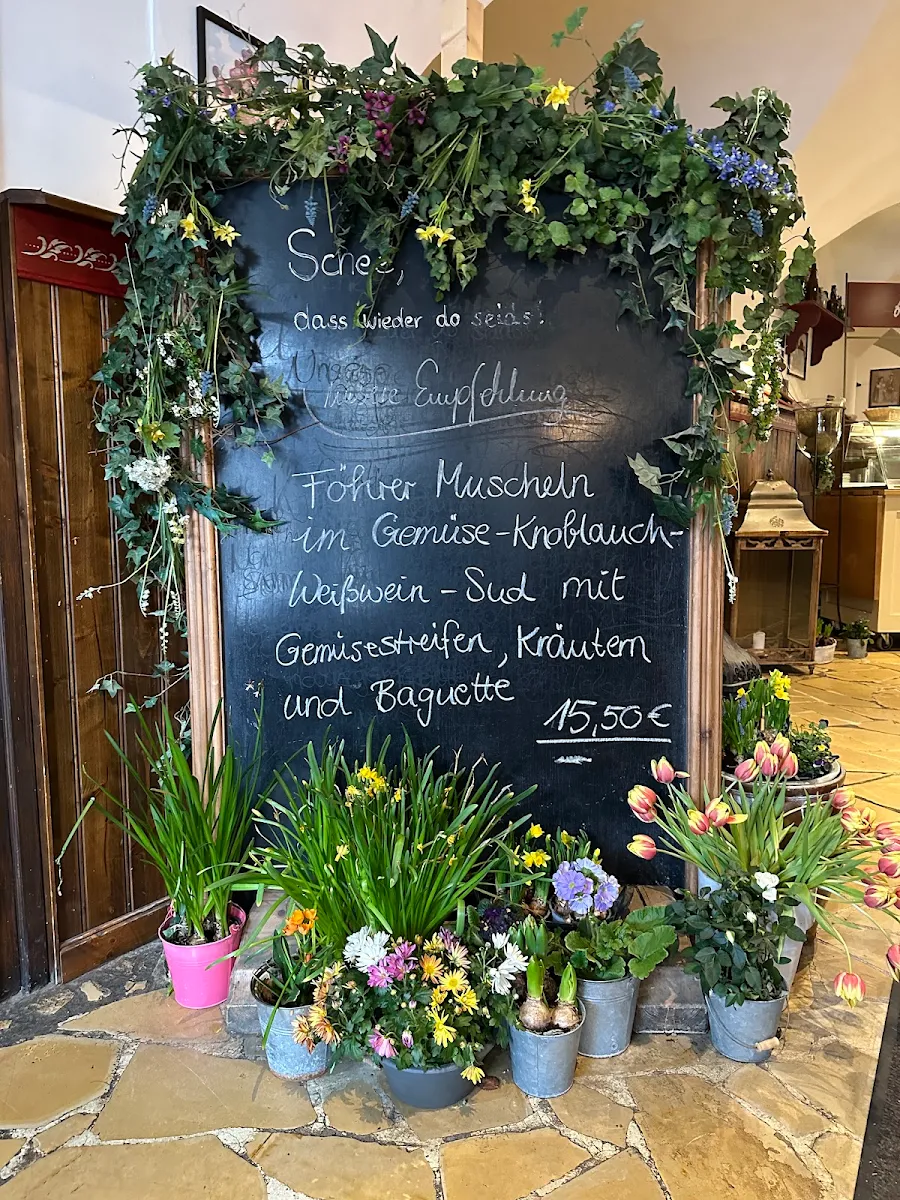 Schee,
dass wieder do seids!
Unsere
heutige Empfehlung
Föhrer Muscheln
im Gemüse-Knoblauch-
Weißwein-Sud mit
Gemüsestreifen, Kräutern
und Baguette
15,50€